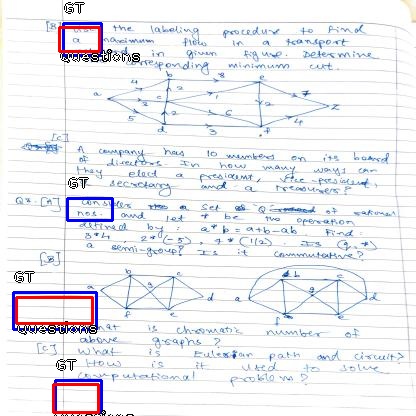 GT
[B] Use the labeling procedure to find
a maximum flow in a transport
in given figure. Determine
Questions
corresponding minimum cut.
b 8 e
4 2 7
a 1 2 z
3 2 6 4
5 d 3 f
[C]
A company has 10 members on its board
of directors. In how many ways can
they elect a president, vice-president,
GT
secretary and a treasurer?
Q3. [A] Consider a set Q of rational
nos. and let * be the operation
defined by : a*b = a+b-ab Find:
3*4 2*(-5), 7*(1/2). Is (Q,*)
a semi-group? Is it commutative?
[B]
GT
b c b c
a g d a g d
f e f
Questions
What is chromatic number of
above graphs?
[C] What is Eulerian path and circuit?
GT
How is it used to solve
computational problem?
Questions